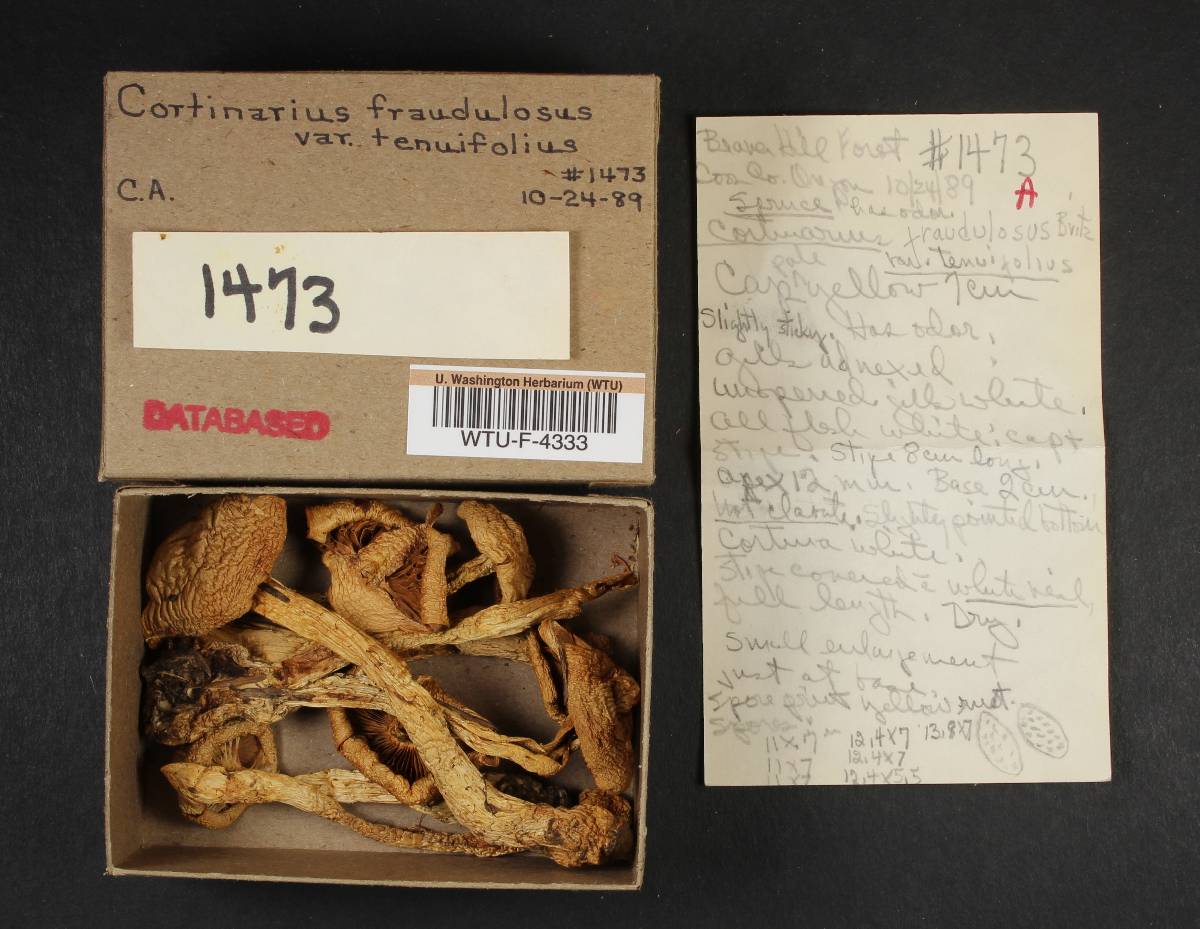 Cortinarius fraudulosus
var. tenuifolius
#1473
C.A.
10-24-89
1473
DATABASED
U. Washington Herbarium (WTU)
WTU-F-4333
Beaver Hill Forest #1473
Coos Co. Oregon 10/24/89
A
Spruce has odor
Cortinarius fraudulosus Britz
var. tenuifolius
pale
Cap yellow 7cm
Slightly sticky. Has odor.
Gills adnexed
unopened gills white.
all flesh white: cap +
Stipe. Stipe 8cm long.
apex 12 mm. Base 2cm.
Not clavate. Slightly pointed bottom
Cortina white.
Stipe covered c̄ white veil,
full length. Dry.
Small enlargement
just at base.
Spore print yellow rust.
Spores:
11x7 12.4x7 13.8x7
11x7 12.4x7
12.4x5.5